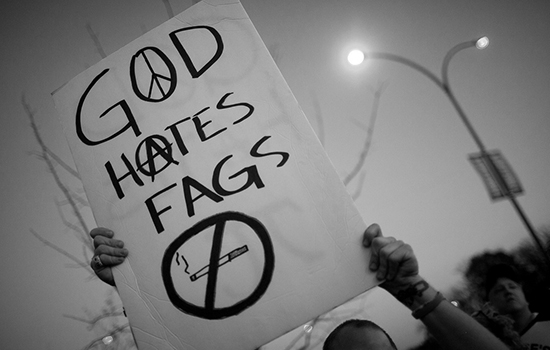 GOD
HATES
FAGS